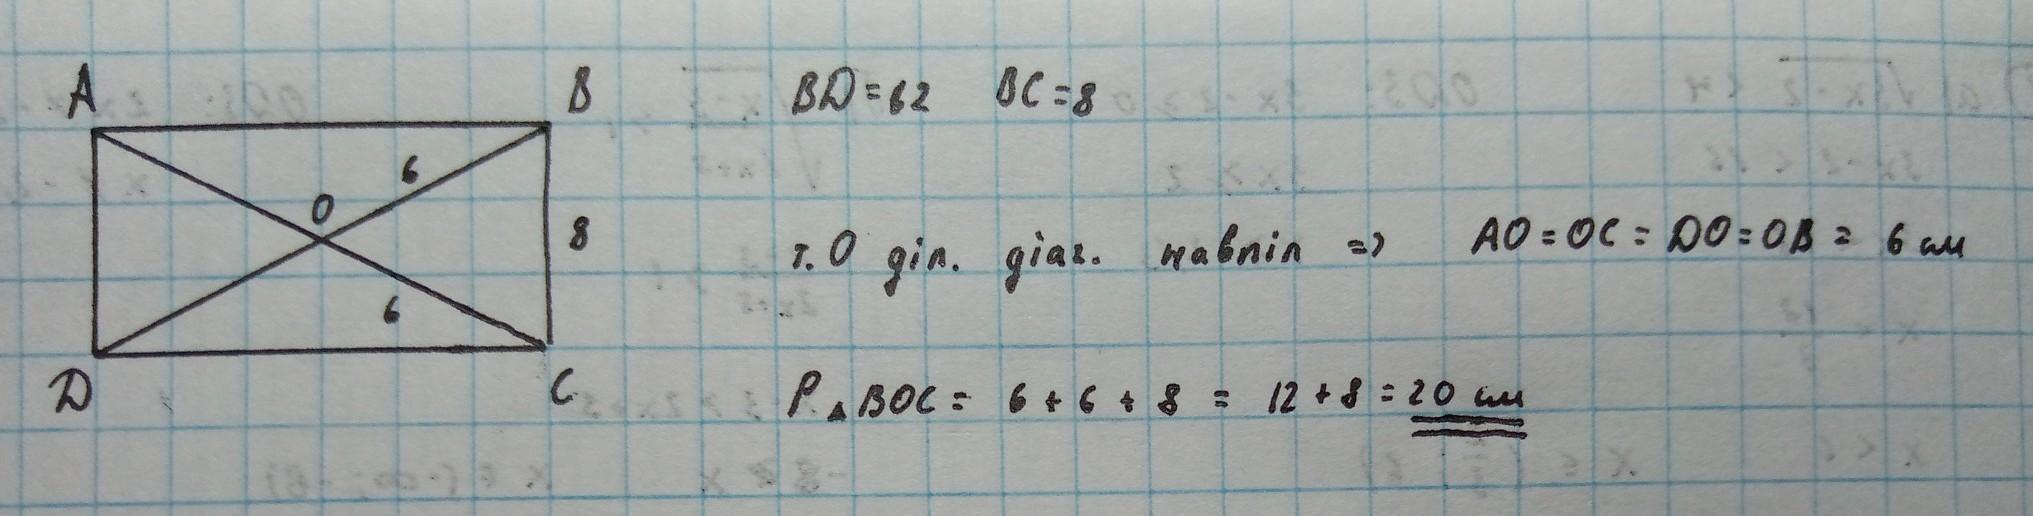 A
B
BD=62 BC=8
6
O
8
т. О діл. діаг. навпіл => AO = OC = DO = OB = 6 см
6
D
C
P▵BOC = 6 + 6 + 8 = 12 + 8 = 20 см